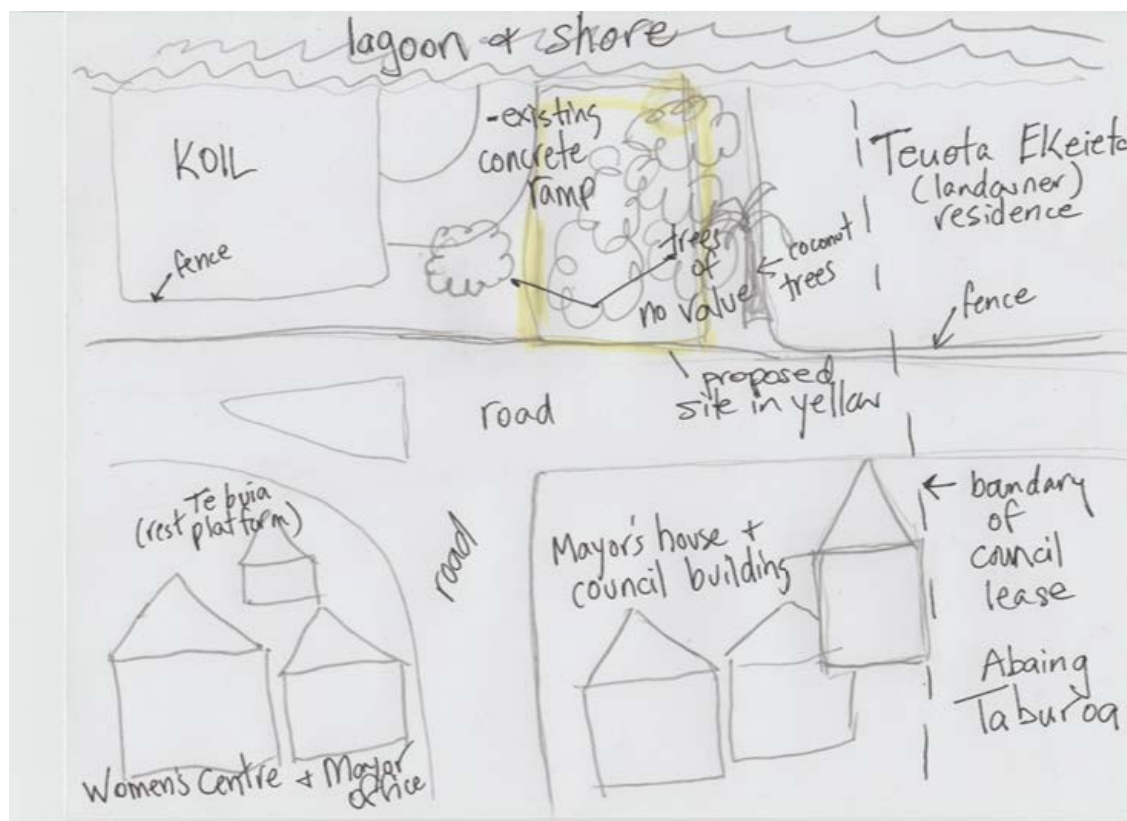 lagoon & shore
KOIL
fence
-existing
concrete
ramp
trees
of
no value
coconut
trees
Teuota EKeieta
(landowner)
residence
fence
proposed
site in yellow
road
Te buia
(rest platform)
road
Mayor's house +
council building
boundary
of
council
lease
Abaing
Taburoa
Women's Centre + Mayor
office